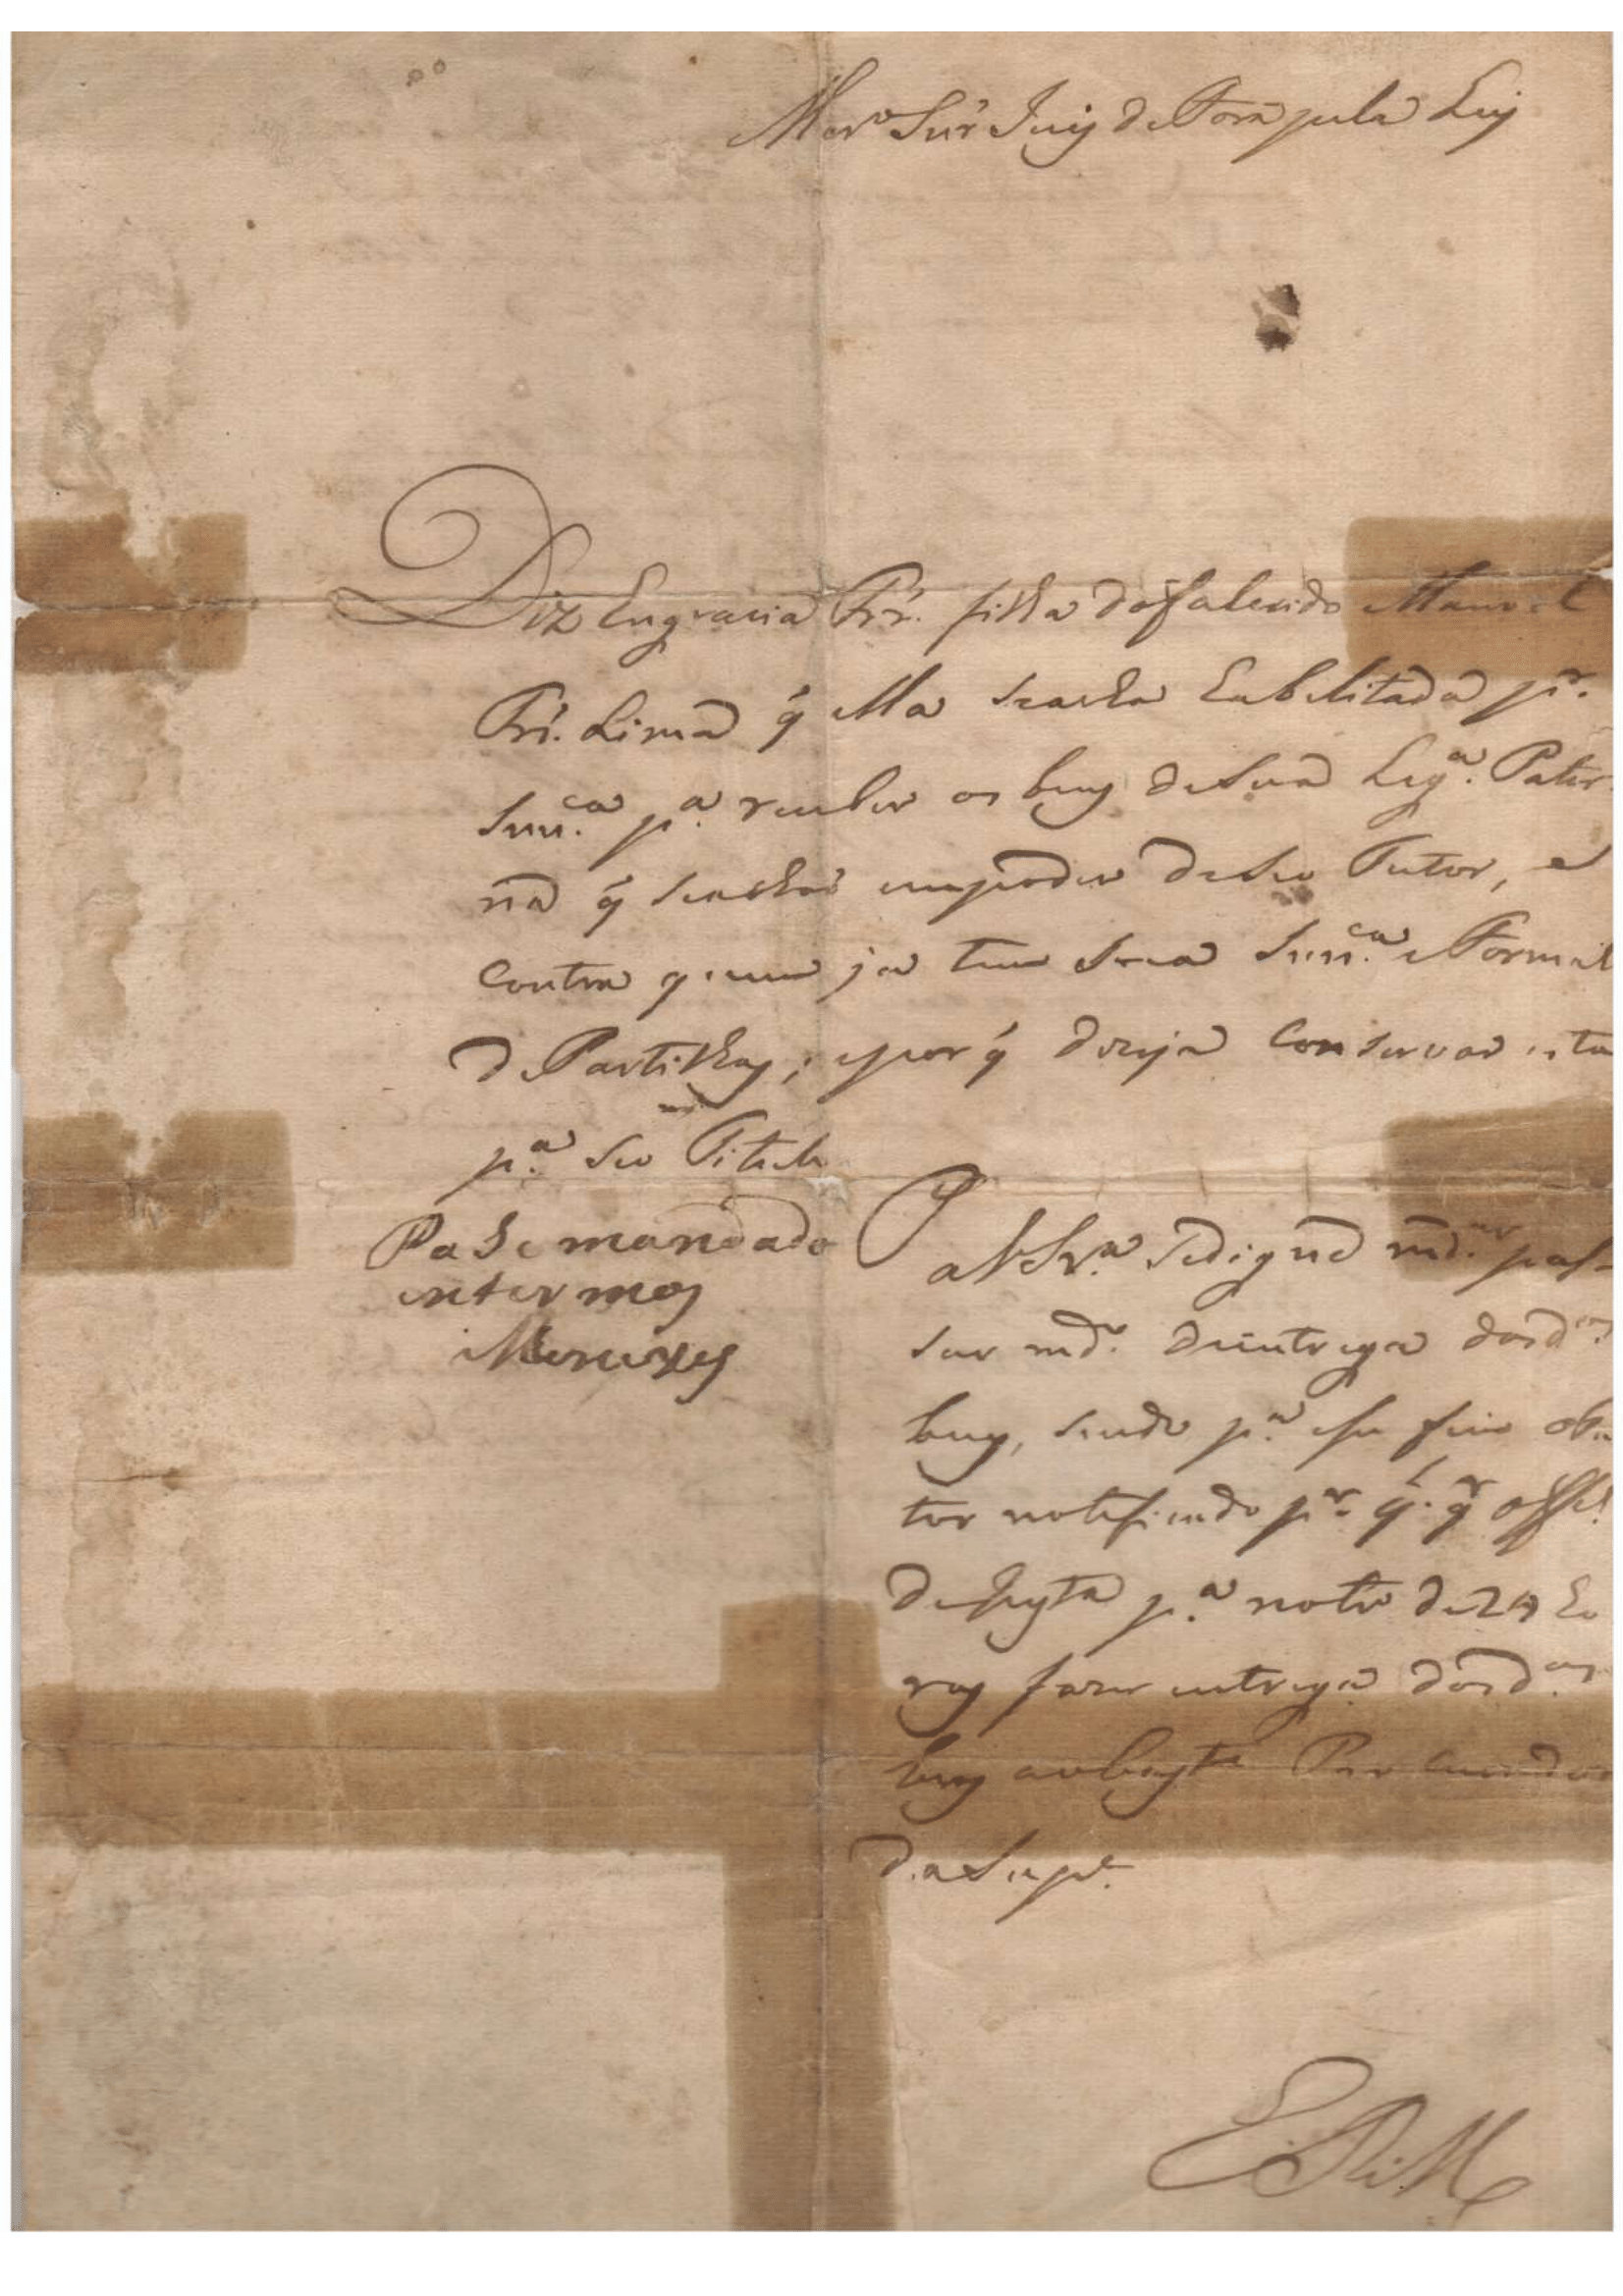 Mer.º Snr̃ Juiz de Fora pela Ley
Diz Engracia Frz̃. filha do falecido Manoel
Frz̃. Lima q̃ ella se acha habelitada p.r
Senn.ca p.a receber os bens de sua Leg.a Pater
na q̃ se achaõ em poder de seo Tutor, e
contra quem ja tem sua Senn.ca e Formal
de Partilhas; e por q̃ dezeja conservar esta
p.a seo Titulo
Pase mandado
em termos
Menezes
P
a V S.ra se digne md.ar pas-
sar md.o de entrega dos d.os
bens, sendo p.a esse fim o Tu
tor notificado p.r q.l q.r Off.al
desta p.a no tr.o de 24 ho
ras fazer entrega dos d.os
bens ao bast.e Procurador
da Sup.e
E R M.ce